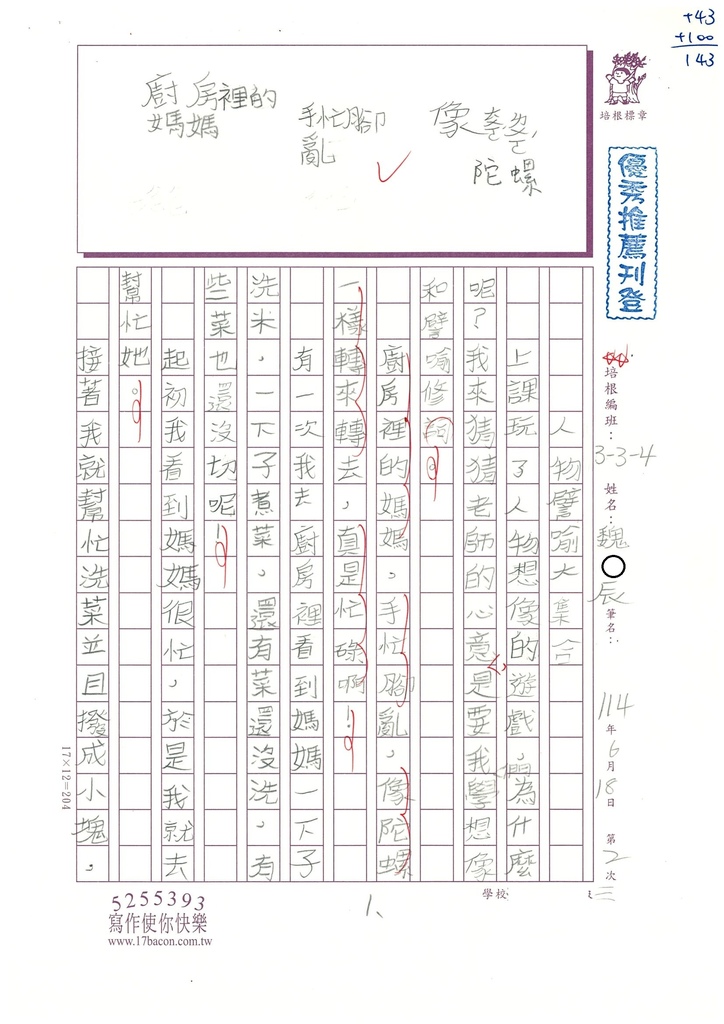 +43
+100
143
培根標章
優秀推薦刊登
廚房裡的
媽媽
手忙腳
亂
像
陀螺
培根編班：3-3-4
姓名：魏 辰
筆名：
114年6月18日
第2次
人物譬喻大集合
上課玩了人物想像的遊戲，為什麼
呢？我來猜猜老師的心意，是要我們學想像
和譬喻修詞。
廚房裡的媽媽。手忙腳亂，像陀螺
一樣轉來轉去，真是忙碌啊！
有一次我去廚房裡看到媽媽一下子
洗米，一下子煮菜，還有菜還沒洗，有
些菜也還沒切呢！
起初我看到媽媽很忙，於是我就去
幫忙她。
接著我就幫忙洗菜並且撥成小塊，
17×12=204
學校
三
1、
5255393
寫作使你快樂
www.17bacon.com.tw